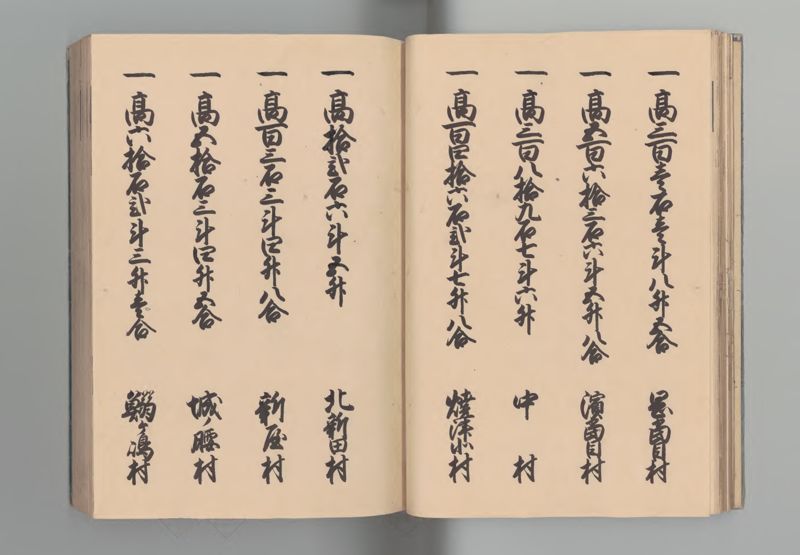 一 高三百壱石壱斗八升五合 里當目村
一 高五百六拾三石六斗五升八合 濱當目村
一 高三百八拾九石七斗六升 中村
一 高百四拾六石弐斗七升八合 焼津北村
一 高拾弐石六斗五升 北新田村
一 高百三石三斗四升八合 新屋村
一 高五拾石三斗四升五合 城ノ腰村
一 高六拾石弐斗三升壱合 鰯ヶ嶋村